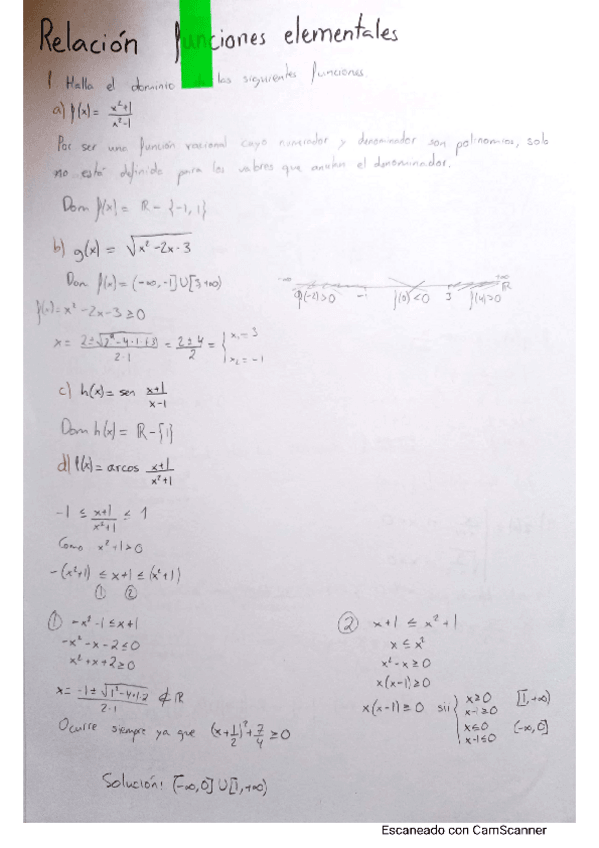 Relación funciones elementales
1 Halla el dominio de las siguientes funciones.
a) f(x) = x²+1 / x²-1
Por ser una función racional cuyo numerador y denominador son polinomios, solo
no está definido para los valores que anulan el denominador.
Dom f(x) = ℝ - {-1, 1}
b) g(x) = √(x²-2x-3)
Dom f(x) = (-∞, -1] ∪ [3, +∞)
-∞ f(-2)>0 -1 f(0)<0 3 f(4)>0 +∞ ℝ
f(x) = x²-2x-3 ≥ 0
x = 2±√(2²-4·1·(-3)) / 2·1 = 2±4 / 2 = { x₁=3
x₂=-1
c) h(x) = sen x+1 / x-1
Dom h(x) = ℝ - {1}
d) f(x) = arcos x+1 / x²+1
-1 ≤ x+1 / x²+1 ≤ 1
Como x²+1>0
-(x²+1) ≤ x+1 ≤ (x²+1)
① ②
① -x²-1 ≤ x+1
-x²-x-2 ≤ 0
x²+x+2 ≥ 0
x = -1±√(1²-4·1·2) / 2·1 ∉ ℝ
Ocurre siempre ya que (x+1/2)²+7/4 ≥ 0
② x+1 ≤ x²+1
x ≤ x²
x²-x ≥ 0
x(x-1) ≥ 0
x(x-1) ≥ 0 sii { x≥0
x-1≥0 [1, +∞)
x≤0
x-1≤0 (-∞, 0]
Solución: (-∞, 0] ∪ [1, +∞)
Escaneado con CamScanner